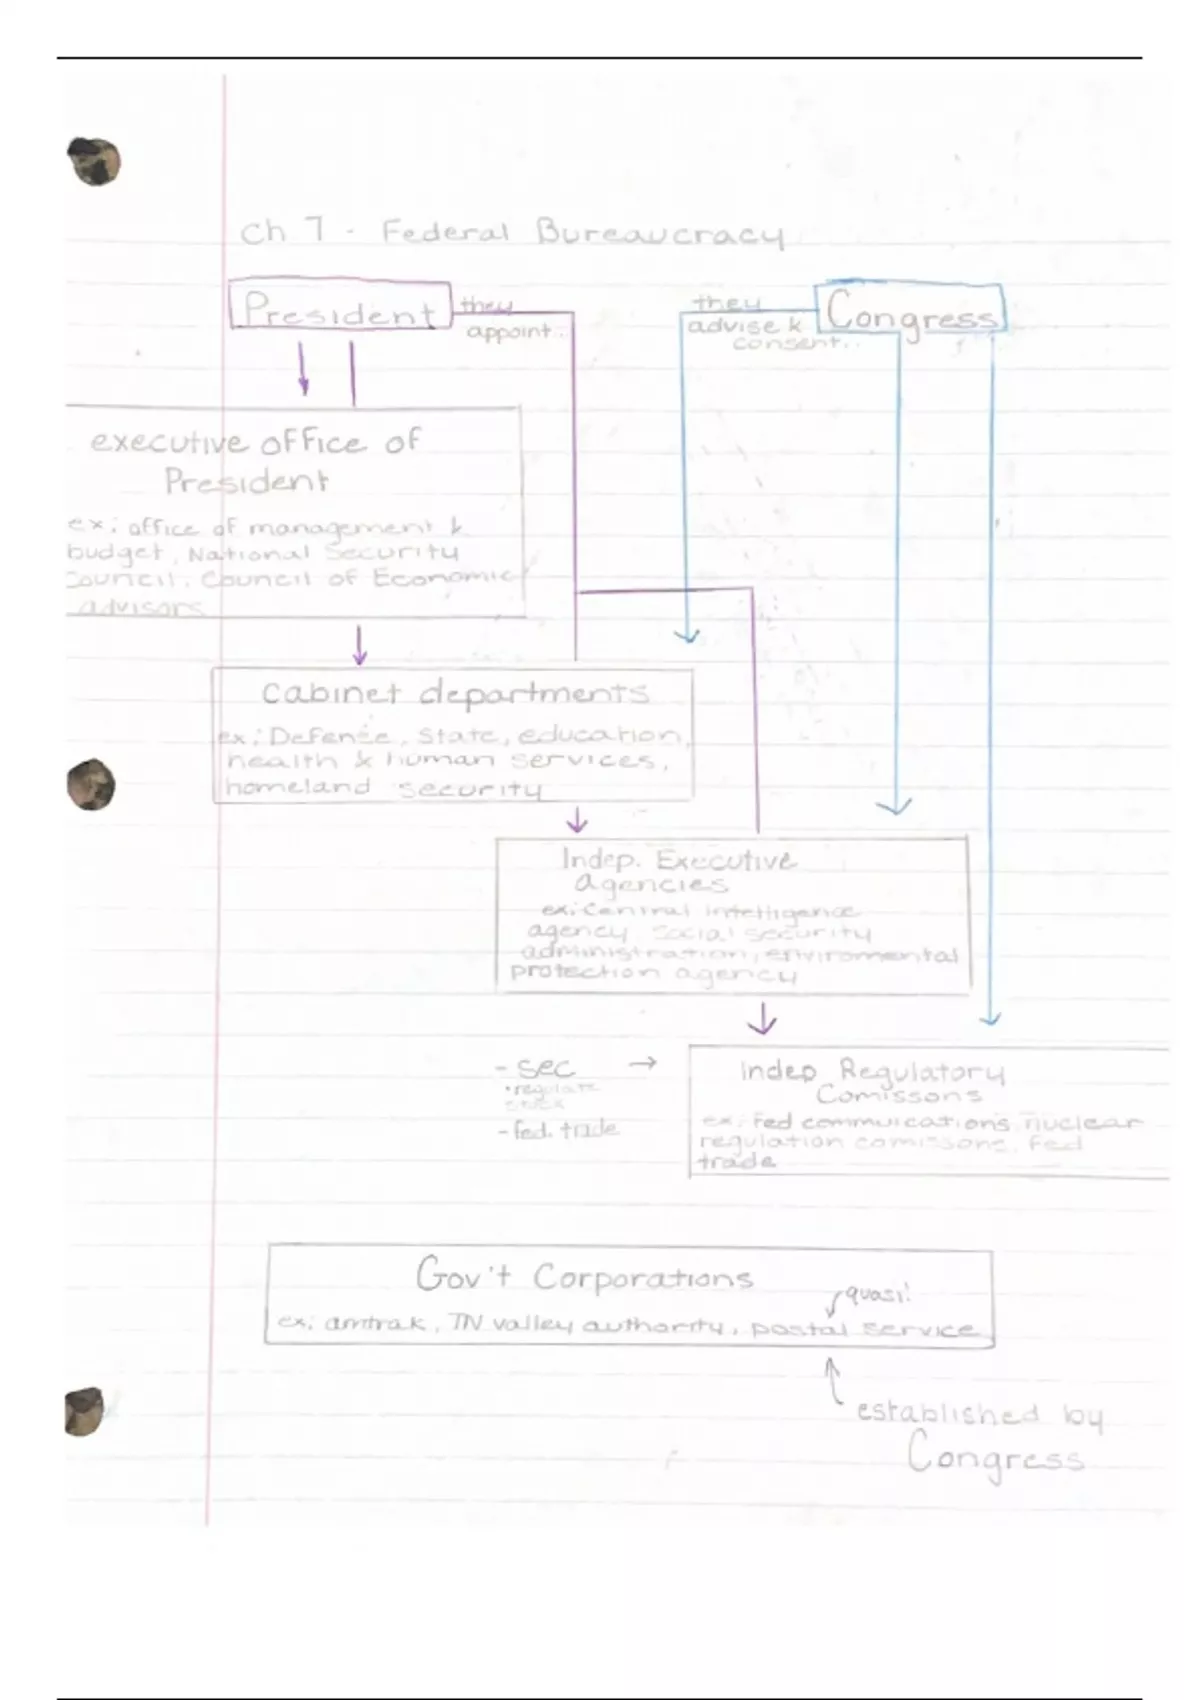 Ch 7 - Federal Bureaucracy
President
they
appoint...
they
advise &
consent...
Congress
executive office of
President
ex: office of management &
budget, National Security
Council, Council of Economic
advisors
cabinet departments
ex: Defense, State, education,
health & human services,
homeland security
Indep. Executive
agencies
ex: Central intelligence
agency, social security
administration, enviromental
protection agency
- SEC →
• regulate
stock
- fed. trade
indep Regulatory
Comissons
ex: Fed commuications, nuclear
regulation comissons, Fed
trade
Gov't Corporations
quasi!
ex: amtrak, TN valley authority, postal service
established by
Congress